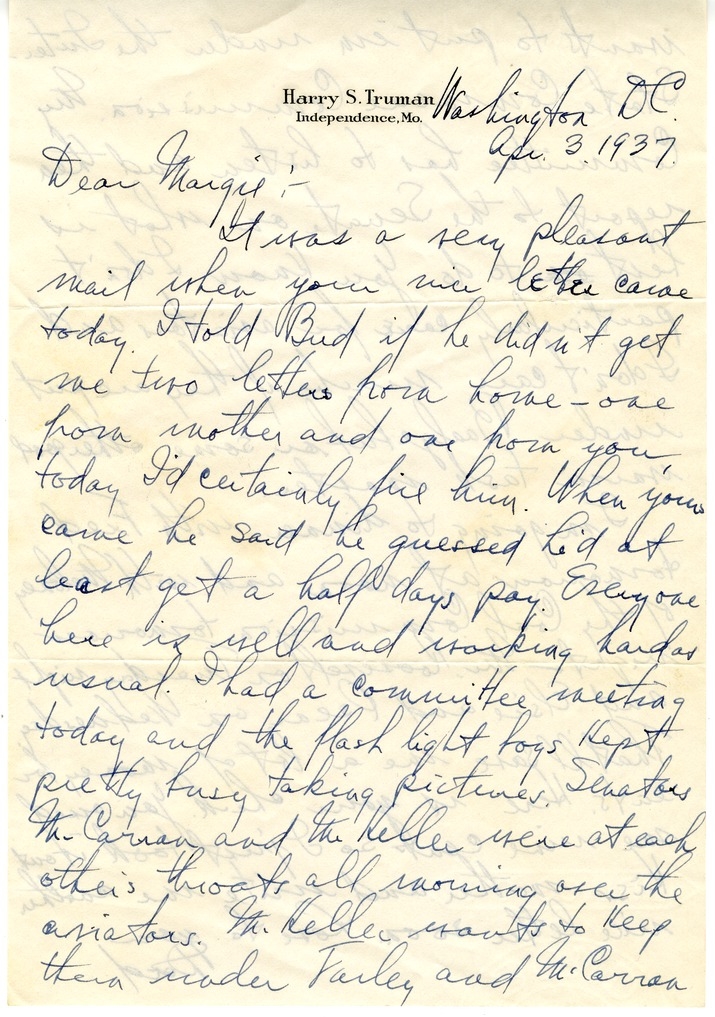 Harry S. Truman
Independence, Mo.
Washington DC.
Apr. 3 1937.
Dear Margie:-
It was a very pleasant
mail when your nice letter came
today. I told Bud if he didn't get
me two letters from home - one
from mother and one from you,
today I'd certainly fire him. When yours
came he said he guessed he'd at
least get a half days pay. Everyone
here is well and working hard as
usual. I had a committee meeting
today and the flash light boys kept
pretty busy taking pictures. Senators
McCarran and McKeller were at each
other's throats all morning over the
aviators. McKeller wants to keep
them under Farley and McCarran